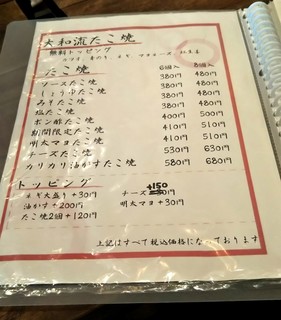 大和流たこ焼
無料トッピング
カツオ、青のり、ネギ、マヨネーズ、紅生姜
たこ焼 6個入 8個入
ソースたこ焼 380円 480円
しょうゆたこ焼 380円 480円
みそたこ焼 380円 480円
塩たこ焼 380円 480円
ポン酢たこ焼 400円 500円
期間限定たこ焼 410円 510円
明太マヨたこ焼 410円 510円
チーズたこ焼 530円 630円
カリカリ油かすたこ焼 580円 680円
トッピング
ネギ大盛り+30円 チーズ+150円
油かす+200円 明太マヨ+30円
たこ焼2個+120円
上記はすべて税込価格になっております